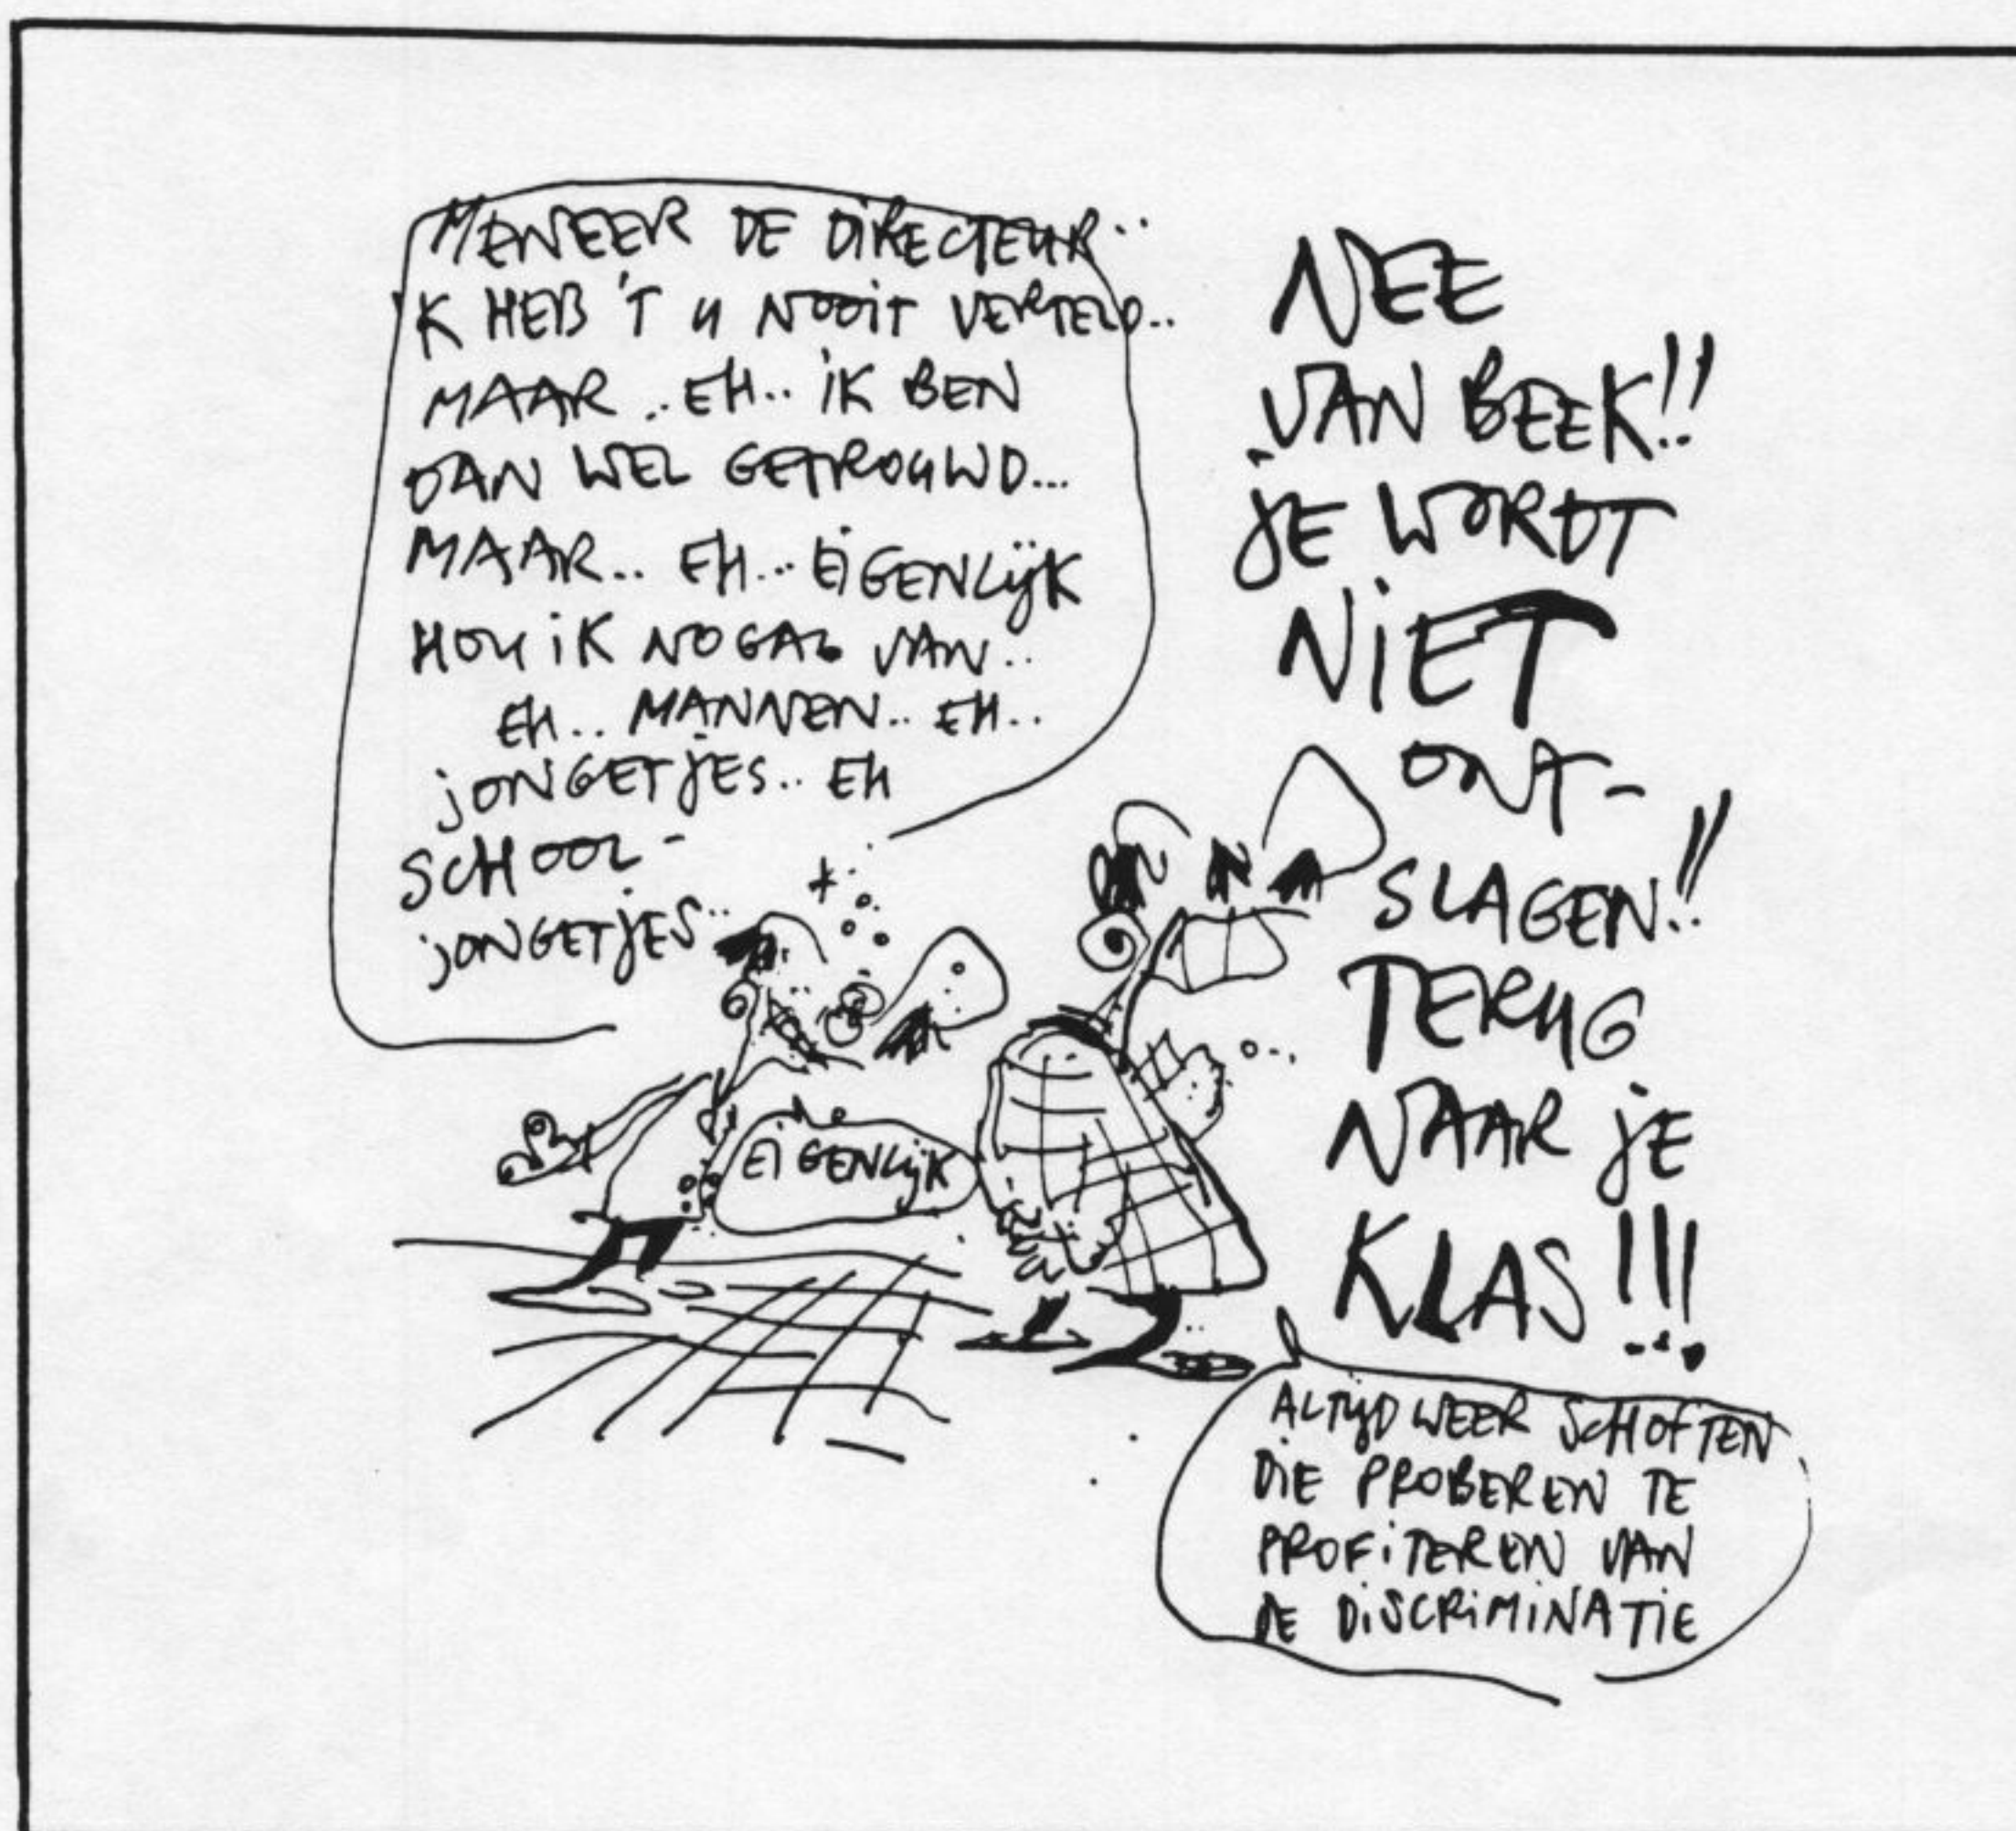 MENEER DE DIRECTEUR..
'K HEB 'T U NOOIT VERTELD..
MAAR .. EH.. IK BEN
DAN WEL GETROUWD...
MAAR.. EH... EIGENLIJK
HOU IK NOGAL VAN..
EH.. MANNEN.. EH..
JONGETJES.. EH
SCHOOL-
JONGETJES..
EIGENLIJK
NEE
VAN BEEK!!
JE WORDT
NIET
ONT-
SLAGEN!!
TERUG
NAAR JE
KLAS!!!
ALTIJD WEER SCHOFTEN
DIE PROBEREN TE
PROFITEREN VAN
DE DISCRIMINATIE